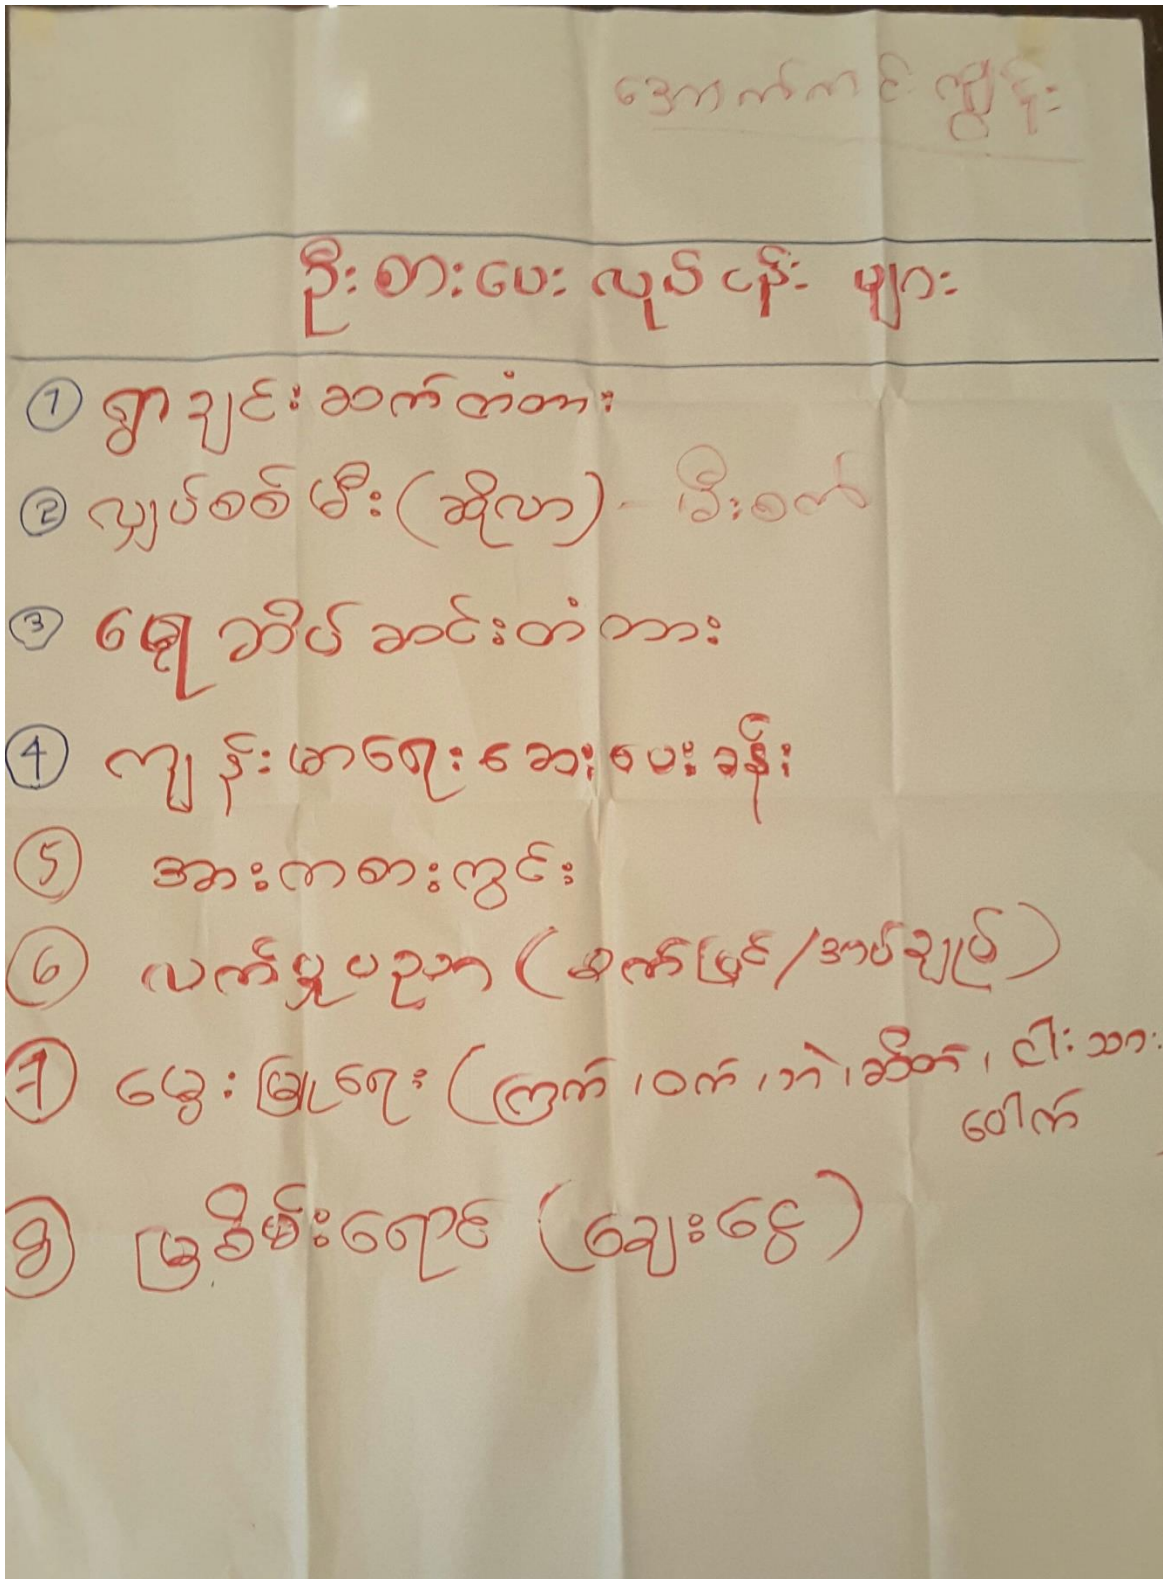 အောက်ကင်ကျွန်း
ဦးစားပေးလုပ်ငန်းများ
1 ရွာချင်းဆက်တံတား
2 လျှပ်စစ်မီး (ဆိုလာ) - မီးစက်
3 ရေဆိပ်ဆင်းတံတား
4 ကျန်းမာရေးဆေးပေးခန်း
5 အားကစားကွင်း
6 လက်မှုပညာ (စက်ပြင်/အပ်ချုပ်)
7 မွေးမြူရေး (ကြက်၊ ဝက်၊ ဘဲ၊ ဆိတ်၊ ငါးသား
ပေါက်
8 မြစိမ်းရောင် (ချေးငွေ)